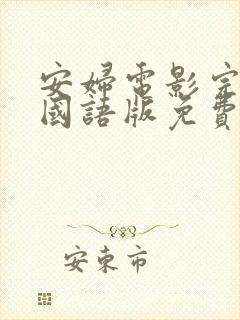 安婦電影完
國語版免費
安東市